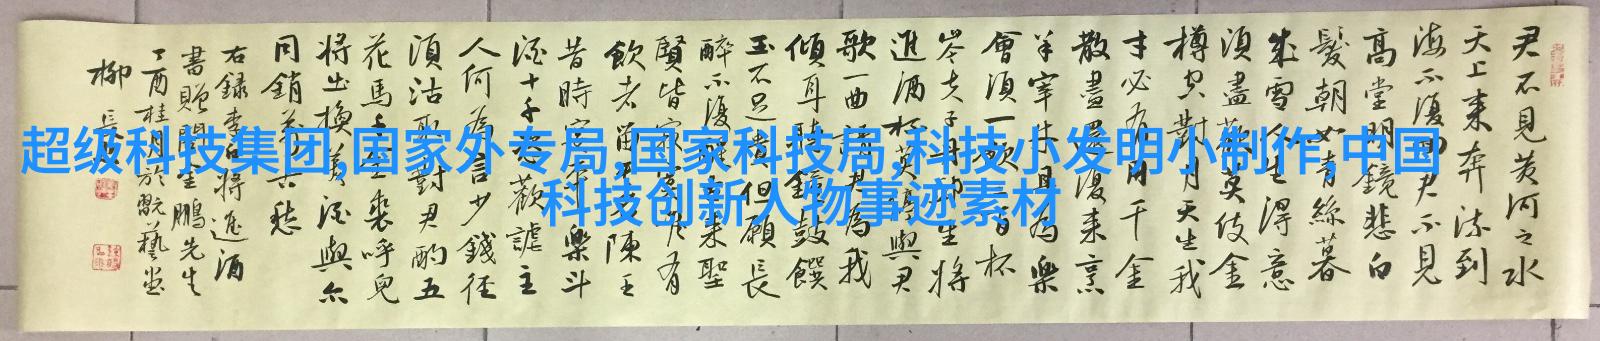 超级科技集团,国家外专局,国家科技局,科技小发明小制作,中国
科技创新人物事迹素材
君不見黃河之水
天上来奔流到
海不復回君不見
高堂明鏡悲白
髮朝如青絲暮
成雪人生得意
須盡歡莫使金
樽空對月天生我
才必有用千金
散盡還復来烹
羊宰牛且為樂
會須一飲三百杯
岑夫子丹生將
進酒杯莫停與君
歌一曲請君為我
傾耳聽鐘鼓饌
玉不足貴但願長
醉不復醒古来聖
賢皆寂寞惟有
飲者留其名陳王
昔時宴平樂斗
酒十千恣歡謔主
人何為言少錢径
須沽取對君酌五
花馬千金裘呼兒
將出換美酒與尔
同銷萬古愁
右録李白將進酒
書贈鵬先生
丁酉桂月於翫藝堂
柳長